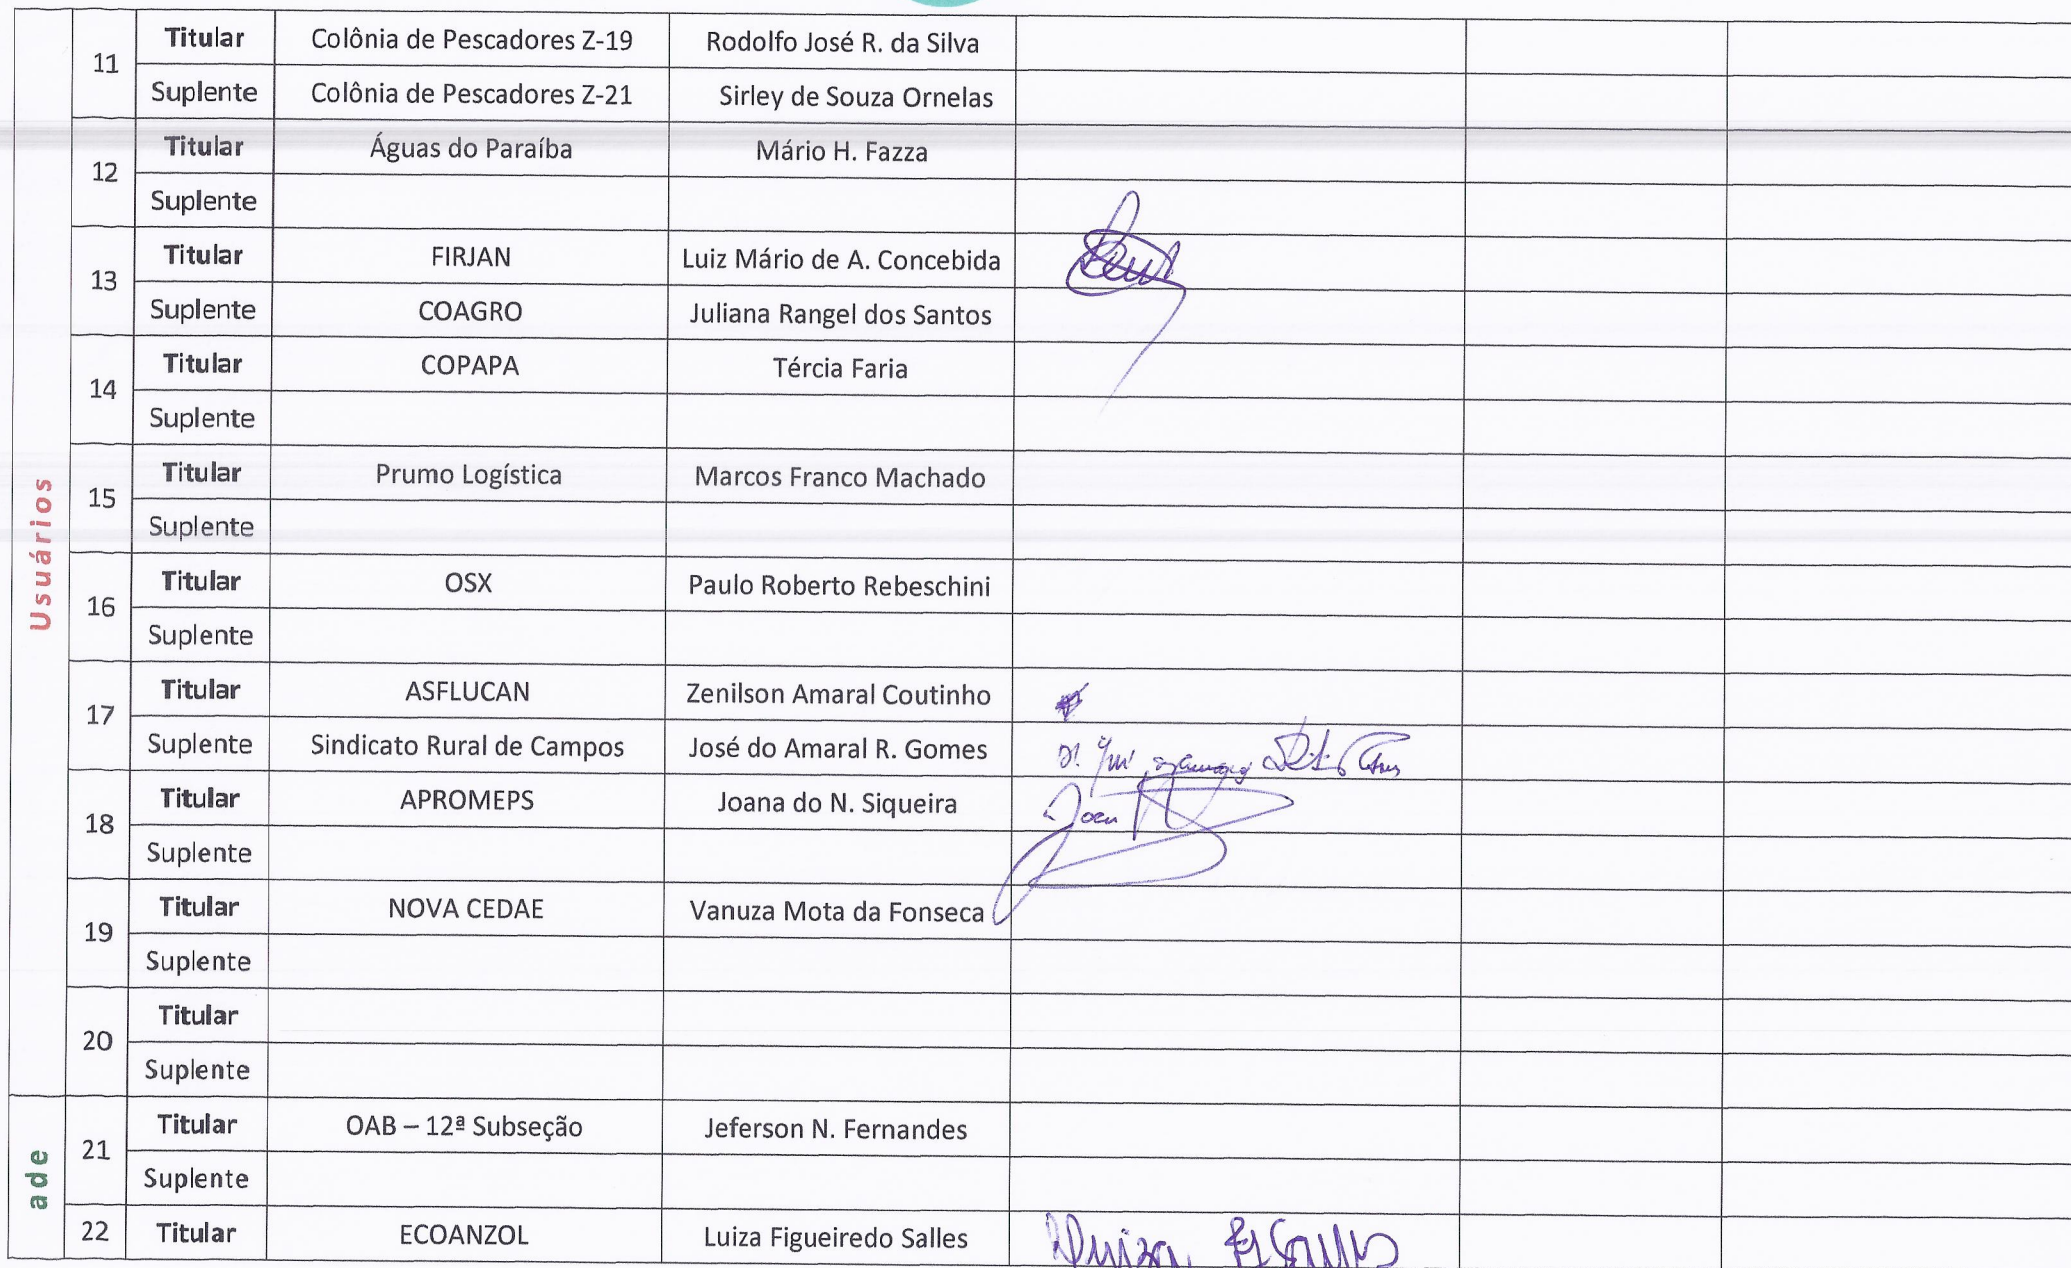 Usuários
11 Titular Colônia de Pescadores Z-19 Rodolfo José R. da Silva
Suplente Colônia de Pescadores Z-21 Sirley de Souza Ornelas
12 Titular Águas do Paraíba Mário H. Fazza
Suplente
13 Titular FIRJAN Luiz Mário de A. Concebida
Suplente COAGRO Juliana Rangel dos Santos
14 Titular COPAPA Tércia Faria
Suplente
15 Titular Prumo Logística Marcos Franco Machado
Suplente
16 Titular OSX Paulo Roberto Rebeschini
Suplente
17 Titular ASFLUCAN Zenilson Amaral Coutinho
Suplente Sindicato Rural de Campos José do Amaral R. Gomes
18 Titular APROMEPS Joana do N. Siqueira
Suplente
19 Titular NOVA CEDAE Vanuza Mota da Fonseca
Suplente
20 Titular
Suplente
ade
21 Titular OAB – 12ª Subseção Jeferson N. Fernandes
Suplente
22 Titular ECOANZOL Luiza Figueiredo Salles Luiza